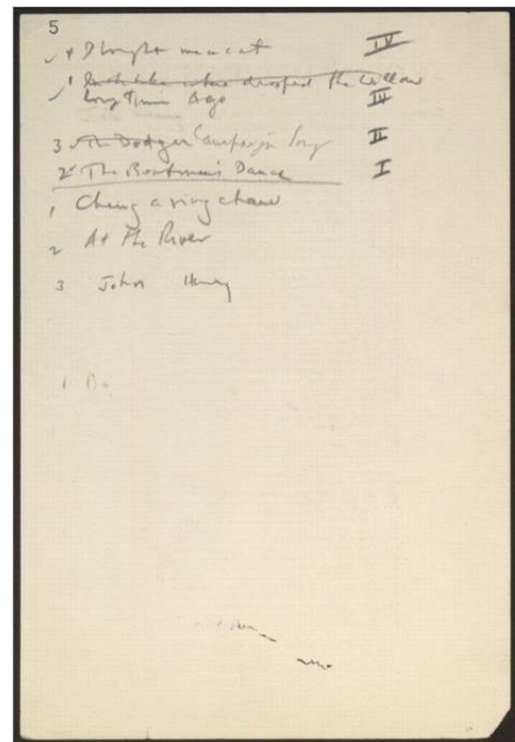 5
✓ 4 I bought me a cat IV
✓ 1 In the lake where dropped the Willow
Long Time Ago III
3 The Dodger Campaign Song II
2 The Boatmen's Dance I
1 Ching a ring chaw
2 At The River
3 John Henry
1 Bo